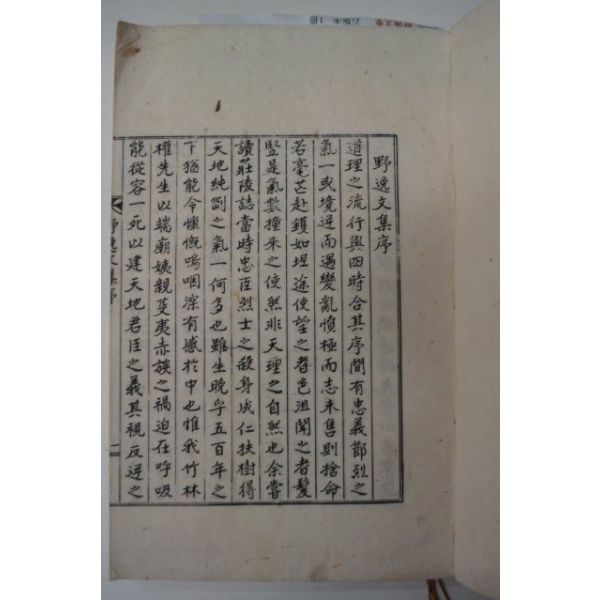 野逸文集序
道理之流行與四時合其序間有忠義節烈之
氣一或境逆而遇變亂憤極而志未售則捨命
若毫芒赴鑊如坦途使望之者色沮聞之者髮
竪是氣數撞來之使然非天理之自然也余嘗
讀莊陵誌當時忠臣烈士之殺身成仁扶樹得
天地純剛之氣一何多也雖生晩孚五百年之
下猶能令慷慨嗚咽深有感於中也惟我竹林
權先生以端廟姨親芟夷赤族之禍迫在呼吸
能從容一死以建天地君臣之義其視反逆之
野逸文集序
一